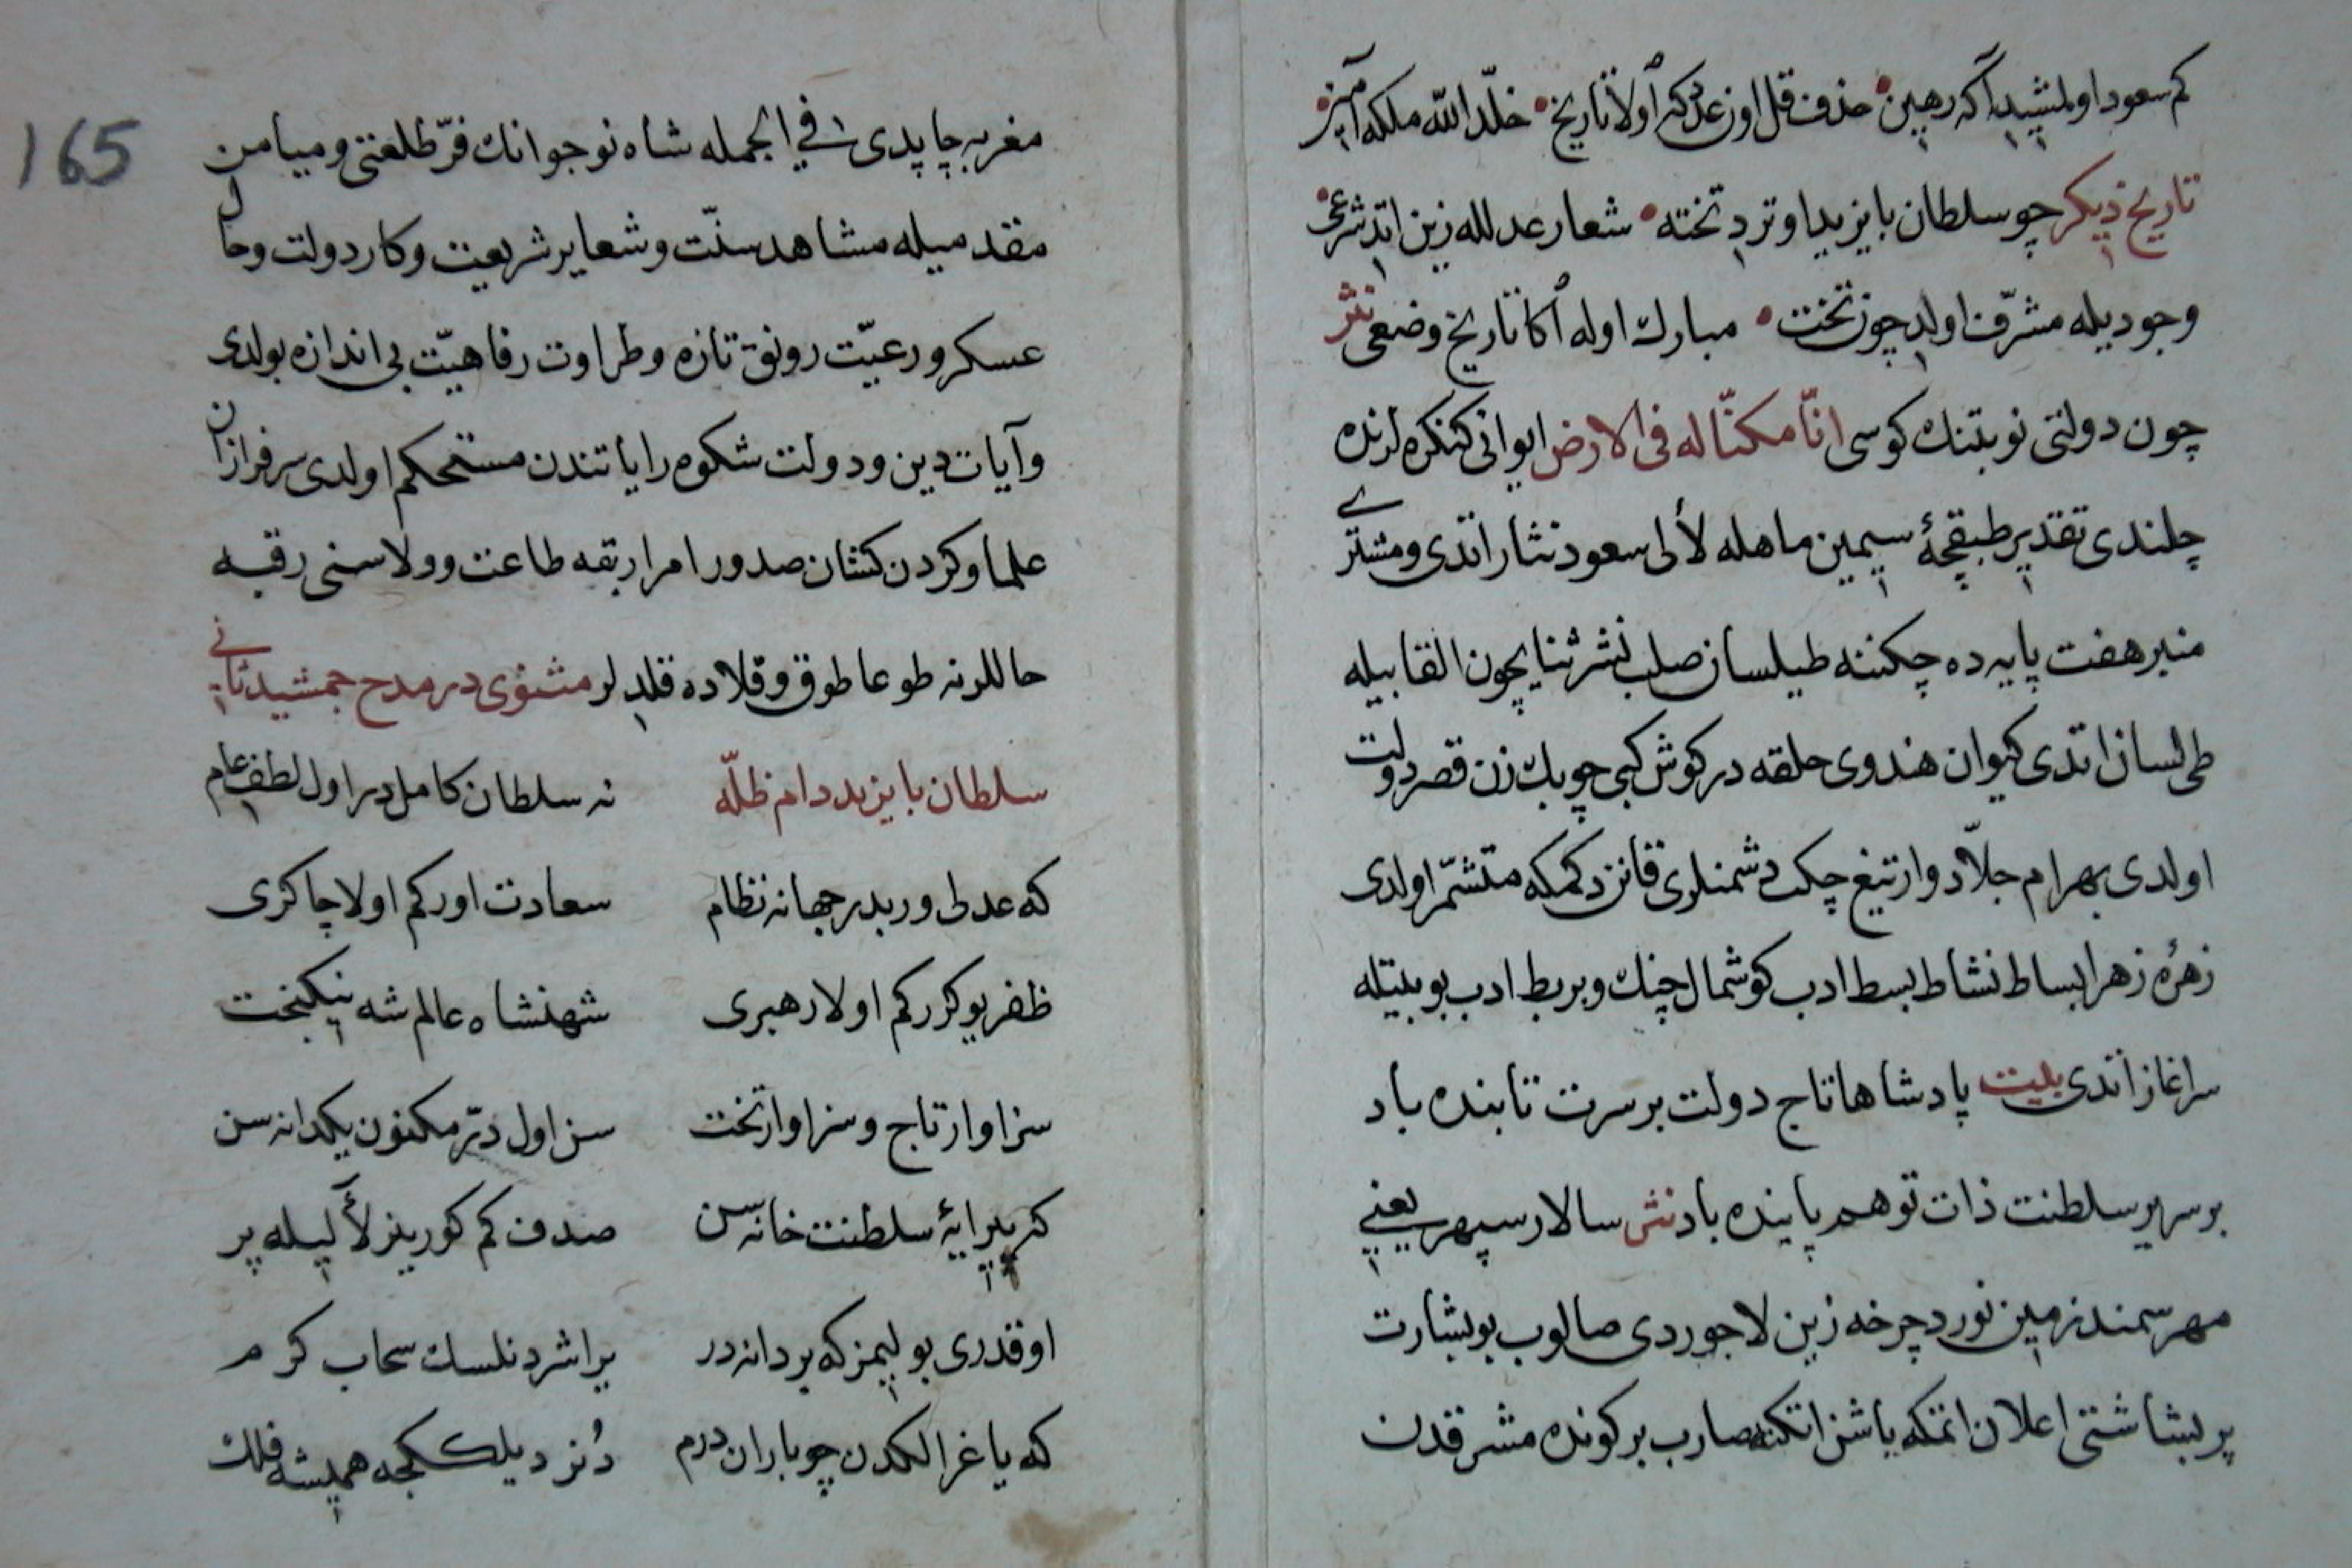 كم سعود اولمشيدى آكه رهين حذف قل اوز عدكه اولا تاريخ خلّد الله ملكه آمين
تاريخ ديكر چو سلطان بايزيد اوتردى تخته شعار عدلله زين اتدى شرعى
وجوديله مشرّف اولدى چون تخت مبارك اوله اكا تاريخ وضعى نثر
چون دولتى نوبتنك كوسى انّا مكنّا له فى الارض ايوانى كنكره لرنده
چلندى تقدير طبقچۀ سيمين ماهله لألى سعود نثار اتدى ومشترى
منبر هفت پايه ده چكننه طيلسان صلب نشر ثنا يچون القابيله
طى لسان اتدى كيوان هندوى حلقه در كوش كبى چوبك زن قصر دولت
اولدى بهرام جلّاد وار تيغ چكب دشمنلرى قانن دكمكه متشمّر اولدى
زهرۀ زهرا بساط نشاط بسط ادب كوشمال چنك وبربط ادب بو بيتله
سراغاز اتدى بيت پادشاها تاج دولت بر سرت تابنده باد
بر سرير سلطنت ذات تو هم پاينده باد نثر سالار سپهر يعنى
مهر سمند زمين نورد چرخه زين لاجوردى صالوب بو بشارت
پر بشاشتى اعلان اتمكه ياشن اتكنه صارب بر كونده مشرقدن
مغربه چاپدى فى الجمله شاه نوجوانك فرّ طلعتى وميامن
مقدميله مشاهد سنّت وشعاير شريعت وكار دولت وحال
عسكر ورعيّت رونق تازه وطراوت رفاهيّت بى اندازه بولدى
وآيات دين ودولت شكوه راياتندن مستحكم اولدى سرفرازان
علما وكردن كشان صدور امرا ربقه طاعت وولاسنى رقبه
حاللرنه طوعا طوق وقلاده قلدلر مثنوى در مدح جمشيد ثانى
سلطان بايزيد دام ظلّه نه سلطان كامل در اول لطف عام
كه عدلى وريدر جهانه نظام سعادت اوركم اولا چاكرى
ظفر يوكرركم اولا رهبرى شهنشاه عالم شه نيكبخت
سزاوار تاج وسزاوار تخت سن اول درّ مكنون يكدانه سن
كه پيرايۀ سلطنت خانه سن صدف كم كورينز لألىيله پر
او قدرى بوليمز كه بر دانه در يراشردنلسك سحاب كرم
كه ياغرالكدن چو باران درم دُنر ديلككجه هميشه فلك
165